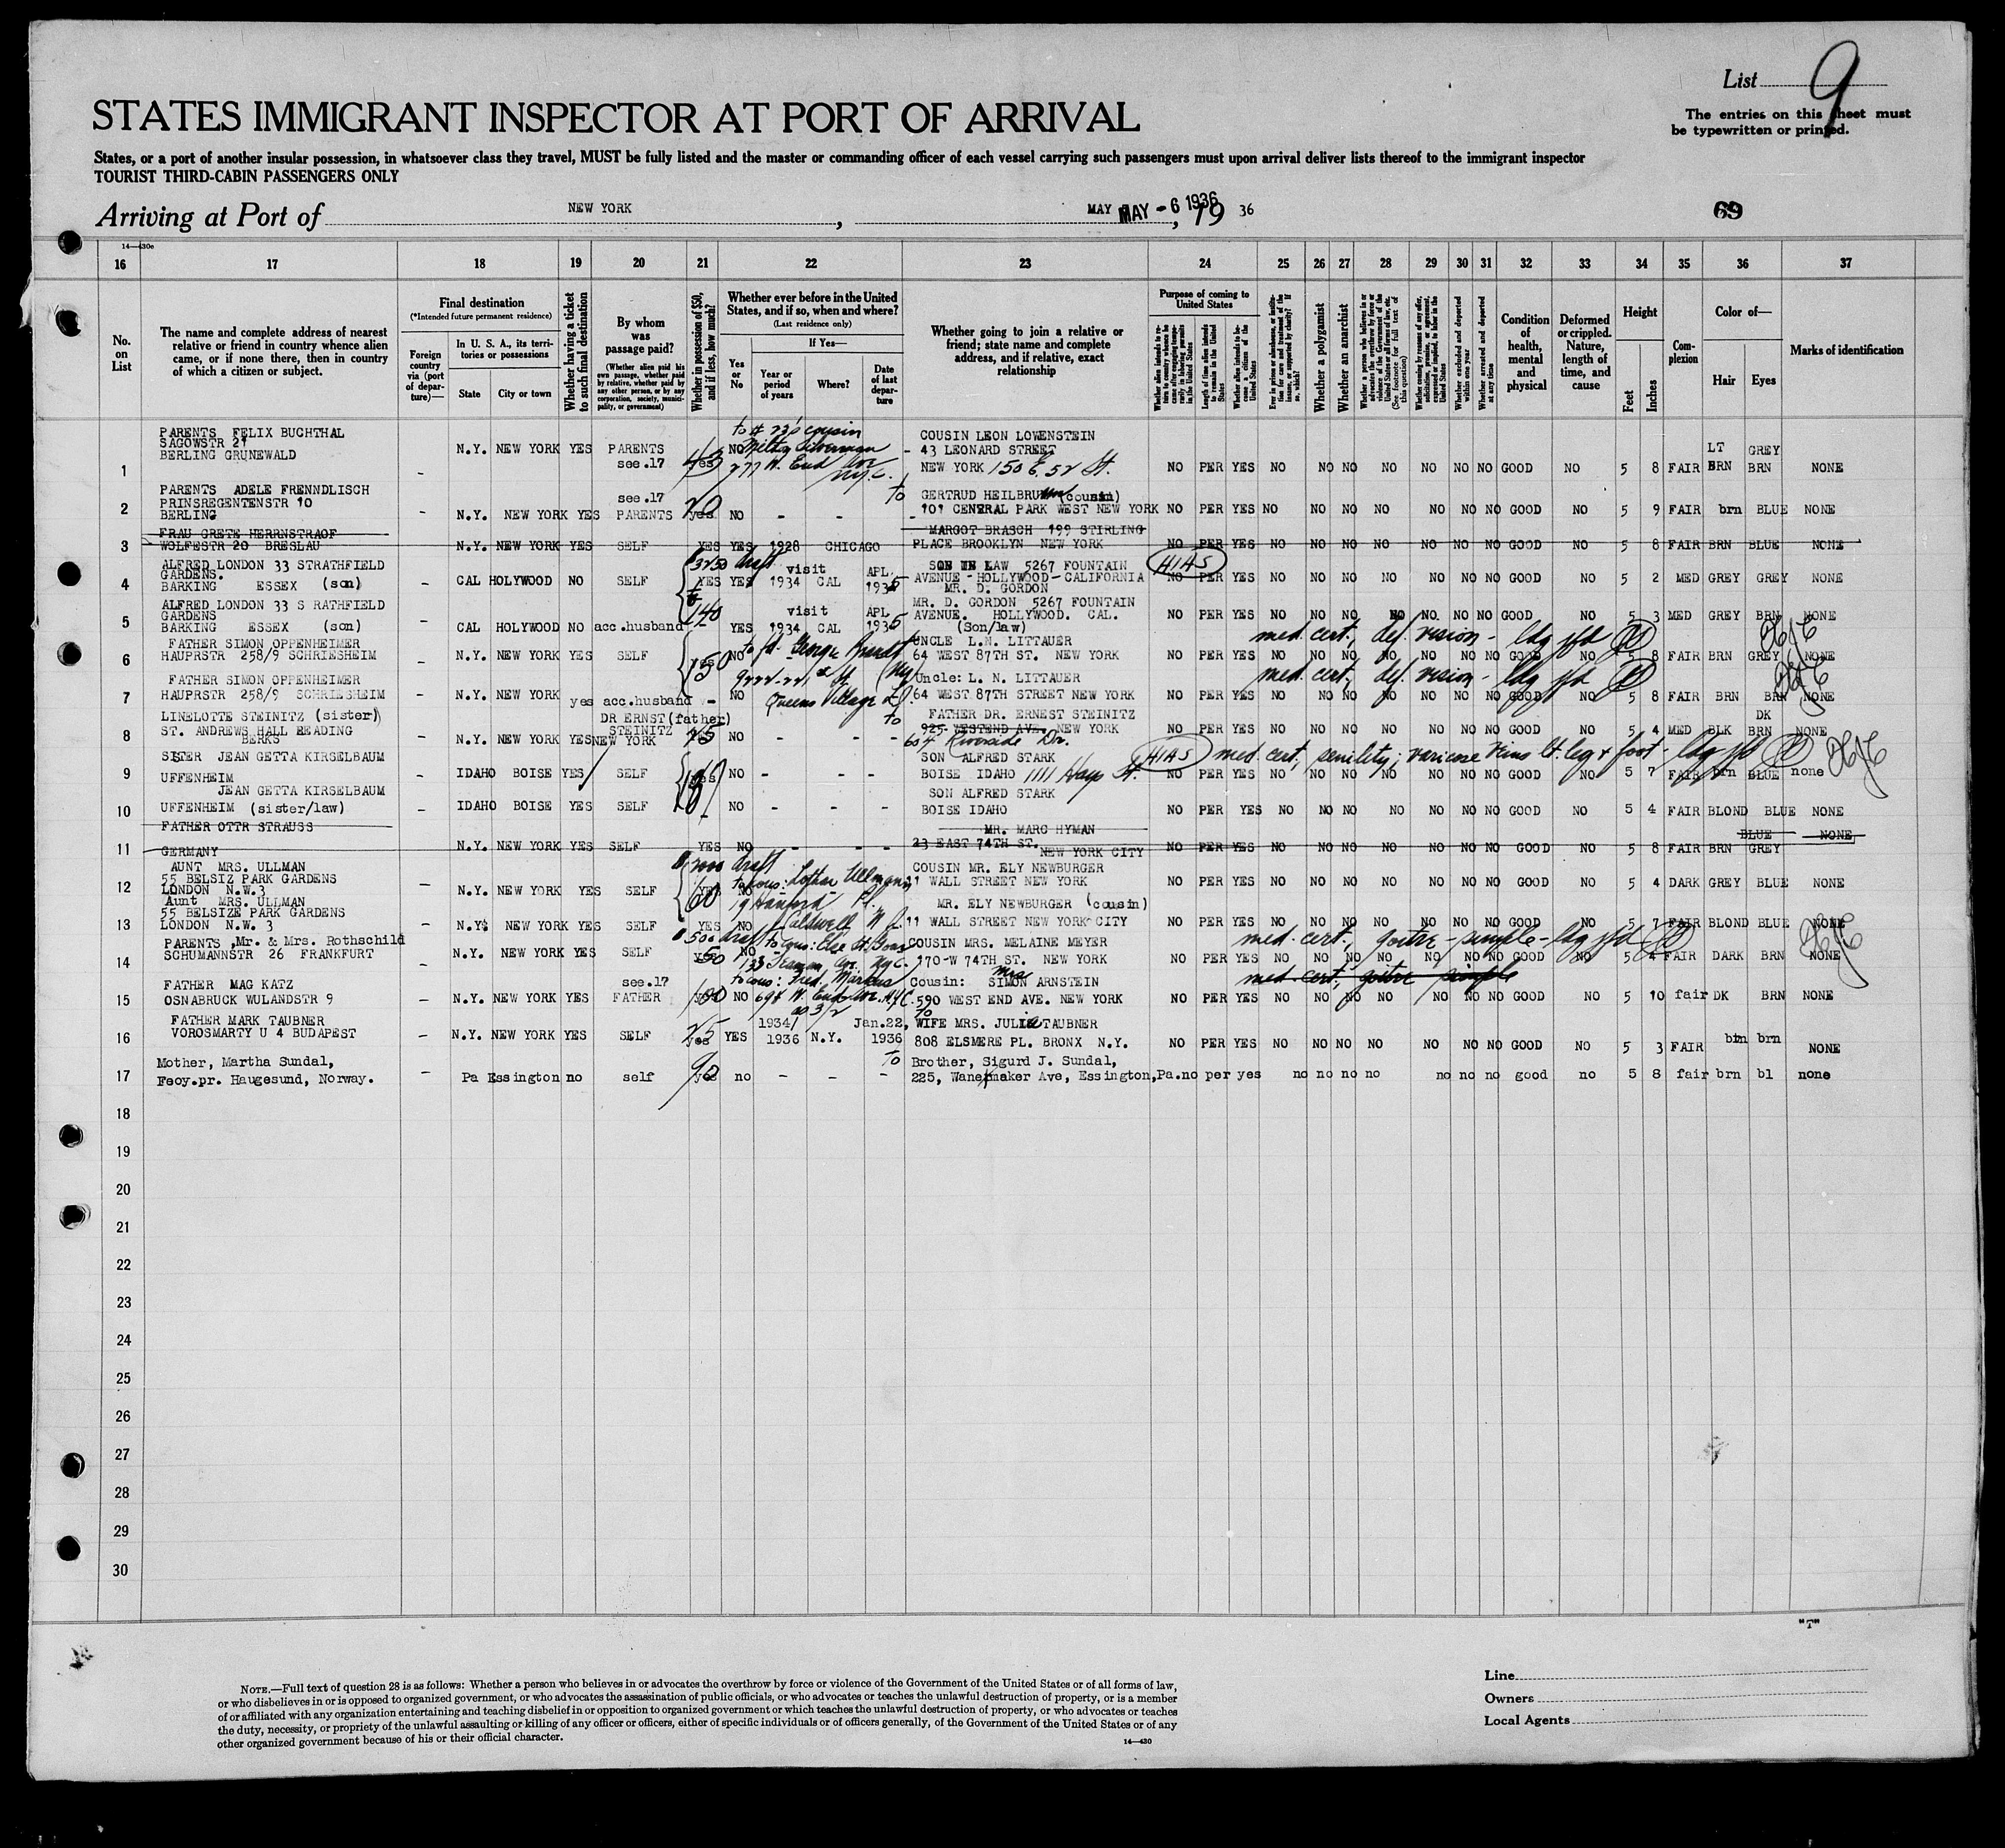 List 9
STATES IMMIGRANT INSPECTOR AT PORT OF ARRIVAL
The entries on this sheet must
be typewritten or printed.
States, or a port of another insular possession, in whatsoever class they travel, MUST be fully listed and the master or commanding officer of each vessel carrying such passengers must upon arrival deliver lists thereof to the immigrant inspector
TOURIST THIRD-CABIN PASSENGERS ONLY
Arriving at Port of NEW YORK, MAY MAY -6 1936, 19 36
69
14—430e
16 17 18 19 20 21 22 23 24 25 26 27 28 29 30 31 32 33 34 35 36 37
No. on List
The name and complete address of nearest relative or friend in country whence alien came, or if none there, then in country of which a citizen or subject.
Final destination
(*Intended future permanent residence)
Foreign country via (port of departure)—
In U. S. A., its territories or possessions
State
City or town
Whether having a ticket to such final destination
By whom was passage paid?
(Whether alien paid his own passage, whether paid by relative, whether paid by any other person, or by any corporation, society, municipality, or government)
Whether in possession of $50, and if less, how much?
Whether ever before in the United States, and if so, when and where?
(Last residence only)
Yes or No
If Yes—
Year or period of years
Where?
Date of last departure
Whether going to join a relative or friend; state name and complete address, and if relative, exact relationship
Purpose of coming to United States
Length of time alien intends to remain in the United States
Whether alien intends to become a citizen of the United States
Whether a polygamist
Whether an anarchist
(See footnote for full text of this question)
Whether excluded and deported within one year
Whether arrested and deported at any time
Condition of health, mental and physical
Deformed or crippled. Nature, length of time, and cause
Height
Feet
Inches
Complexion
Color of—
Hair
Eyes
Marks of identification
1 PARENTS FELIX BUCHTHAL SAGOWSTR 21 BERLING GRUNEWALD - N.Y. NEW YORK YES PARENTS see.17 yes NO to # 23's cousin 777 W. End Ave NYC. COUSIN LEON LOWENSTEIN 43 LEONARD STREET NEW YORK 150 E. 52 St. NO PER YES NO NO NO NO NO NO NO GOOD NO 5 8 FAIR LT BRN GREY BRN NONE
2 PARENTS ADELE FRENNDLISCH PRINSREGENTENSTR 10 BERLING N.Y. NEW YORK YES see.17 PARENTS 20 yes NO - - - to GERTRUD HEILBRUNN (cousin) 101 CENTRAL PARK WEST NEW YORK NO PER YES NO NO NO NO NO NO NO GOOD NO 5 9 FAIR brn BLUE NONE
3 FRAU GRETE HERRNSTRAOF WOLFESTR 20 BRESLAU N.Y. NEW YORK YES SELF YES YES 1928 CHICAGO MARGOT BRASCH 199 STIRLING PLACE BROOKLYN NEW YORK NO PER YES NO NO NO NO NO NO NO GOOD NO 5 8 FAIR BRN BLUE NONE
4 ALFRED LONDON 33 STRATHFIELD GARDENS. BARKING ESSEX (son) - CAL HOLYWOOD NO SELF $3250 draft YES YES visit 1934 CAL APL, 1935 SON IN LAW 5267 FOUNTAIN AVENUE - HOLLYWOOD - CALIFORNIA MR. D. GORDON HIAS NO PER YES NO NO NO NO NO NO NO GOOD NO 5 2 MED GREY GREY NONE
5 ALFRED LONDON 33 S RATHFIELD GARDENS BARKING ESSEX (son) CAL HOLYWOOD NO acc.husband 140 - YES visit 1934 CAL APL 1935 MR. D. GORDON 5267 FOUNTAIN AVENUE. HOLLYWOOD. CAL. (Son/law) NO PER YES NO NO NO NO NO NO NO GOOD NO 5 3 MED GREY BRN NONE
6 FATHER SIMON OPPENHEIMER HAUPRSTR 258/9 SCHRIESHEIM - N.Y. NEW YORK YES SELF 150 yes NO to fd. George Brandt UNCLE L.N. LITTAUER 64 WEST 87TH ST. NEW YORK med. cert; def. vision - ldg NO PER YES NO NO NO NO NO NO NO GOOD NO 5 8 FAIR BRN GREY NONE
7 FATHER SIMON OPPENHEIMER HAUPRSTR 258/9 SCHRIESHEIM - N.Y. NEW YORK yes acc.husband - NO Queens Village Uncle: L. N. LITTAUER 64 WEST 87TH STREET NEW YORK med cert; def. vision - ldg NO PER YES NO NO NO NO NO NO NO GOOD NO 5 8 FAIR BRN BRN NONE
8 LINELOTTE STEINITZ (sister) ST. ANDREWS HALL READING BERKS - N.Y. NEW YORK YES DR ERNST (father) STEINITZ NEW YORK NO - - - to FATHER DR. ERNEST STEINITZ 925 WESTEND AVE. NEW YORK 604 Riverside Dr. NO PER YES NO NO NO NO NO NO NO GOOD NO 5 4 MED BLK DK BRN NONE
9 SISTER JEAN GETTA KIRSELBAUM UFFENHEIM - IDAHO BOISE YES SELF yes NO - - - SON ALFRED STARK BOISE IDAHO 1111 Hays St. HIAS med cert; senility; varicose veins lt. leg & foot - ldg NO PER YES NO NO NO NO NO NO NO GOOD NO 5 7 FAIR brn BLUE none
10 JEAN GETTA KIRSELBAUM UFFENHEIM (sister/law) - IDAHO BOISE YES SELF - NO - - - SON ALFRED STARK BOISE IDAHO NO PER YES NO NO NO NO NO NO NO GOOD NO 5 4 FAIR BLOND BLUE NONE
11 FATHER OTTR STRAUSS GERMANY N.Y. NEW YORK YES SELF YES NO - - - MR. MARC HYMAN 23 EAST 74TH ST. NEW YORK CITY NO PER YES NO NO NO NO NO NO NO GOOD NO 5 8 FAIR BRN BLUE GREY NONE
12 AUNT MRS. ULLMAN 55 BELSIZ PARK GARDENS LONDON N.W.3 - N.Y. NEW YORK YES SELF $2000 draft 60 YES NO to cous: Lothar Ullmann 19 Hanford Pl. COUSIN MR. ELY NEWBURGER 11 WALL STREET NEW YORK NO PER YES NO NO NO NO NO NO NO GOOD NO 5 4 DARK GREY BLUE NONE
13 Aunt MRS. ULLMAN 55 BELSIZE PARK GARDENS LONDON N.W. 3 N.Y. NEW YORK YES SELF YES NO Caldwell N.J. MR. ELY NEWBURGER (cousin) 11 WALL STREET NEW YORK CITY NO PER YES NO NO NO NO NO NO NO GOOD NO 5 7 FAIR BLOND BLUE NONE
14 PARENTS ,Mr. & Mrs. Rothschild SCHUMANNSTR 26 FRANKFURT - N.Y. NEW YORK YES SELF $500 draft 50 NO to cous: Else 133 Seaman Ave. NYC. COUSIN MRS. MELAINE MEYER 170-W 74TH ST. NEW YORK med. cert; goitre - simple - ldg NO PER YES NO NO NO NO NO NO NO GOOD NO 5 4 FAIR DARK BRN NONE
15 FATHER MAG KATZ OSNABRUCK WULANDSTR 9 - N.Y. NEW YORK YES see.17 FATHER NO to cous: Fred. Markus 694 W. End Ave. NYC. Cousin: Mrs SIMON ARNSTEIN 590 WEST END AVE. NEW YORK med cert; goitre simple NO PER YES NO NO NO NO NO NO NO GOOD NO 5 10 fair DK BRN NONE
16 FATHER MARK TAUBNER VOROSMARTY U 4 BUDAPEST - N.Y. NEW YORK YES SELF 25 yes YES 1934/ 1936 N.Y. Jan.22, 1936 to WIFE MRS. JULIA TAUBNER 808 ELSMERE PL. BRONX N.Y. NO PER YES NO NO NO NO NO NO NO GOOD NO 5 3 FAIR brn brn NONE
17 Mother, Martha Sundal, Feoy.pr. Haugesund, Norway. - Pa Essington no self 90 yes no - - - to Brother, Sigurd J. Sundal, 225, Wanemaker Ave, Essington,Pa. no per yes no no no no no no no good no 5 8 fair brn bl none
18
19
20
21
22
23
24
25
26
27
28
29
30
"T"
NOTE.—Full text of question 28 is as follows: Whether a person who believes in or advocates the overthrow by force or violence of the Government of the United States or of all forms of law,
or who disbelieves in or is opposed to organized government, or who advocates the assassination of public officials, or who advocates or teaches the unlawful destruction of property, or is a member
of or affiliated with any organization entertaining and teaching disbelief in or opposition to organized government or which teaches the unlawful destruction of property, or who advocates or teaches
the duty, necessity, or propriety of the unlawful assaulting or killing of any officer or officers, either of specific individuals or of officers generally, of the Government of the United States or of any
other organized government because of his or their official character.
14—430
Line
Owners
Local Agents